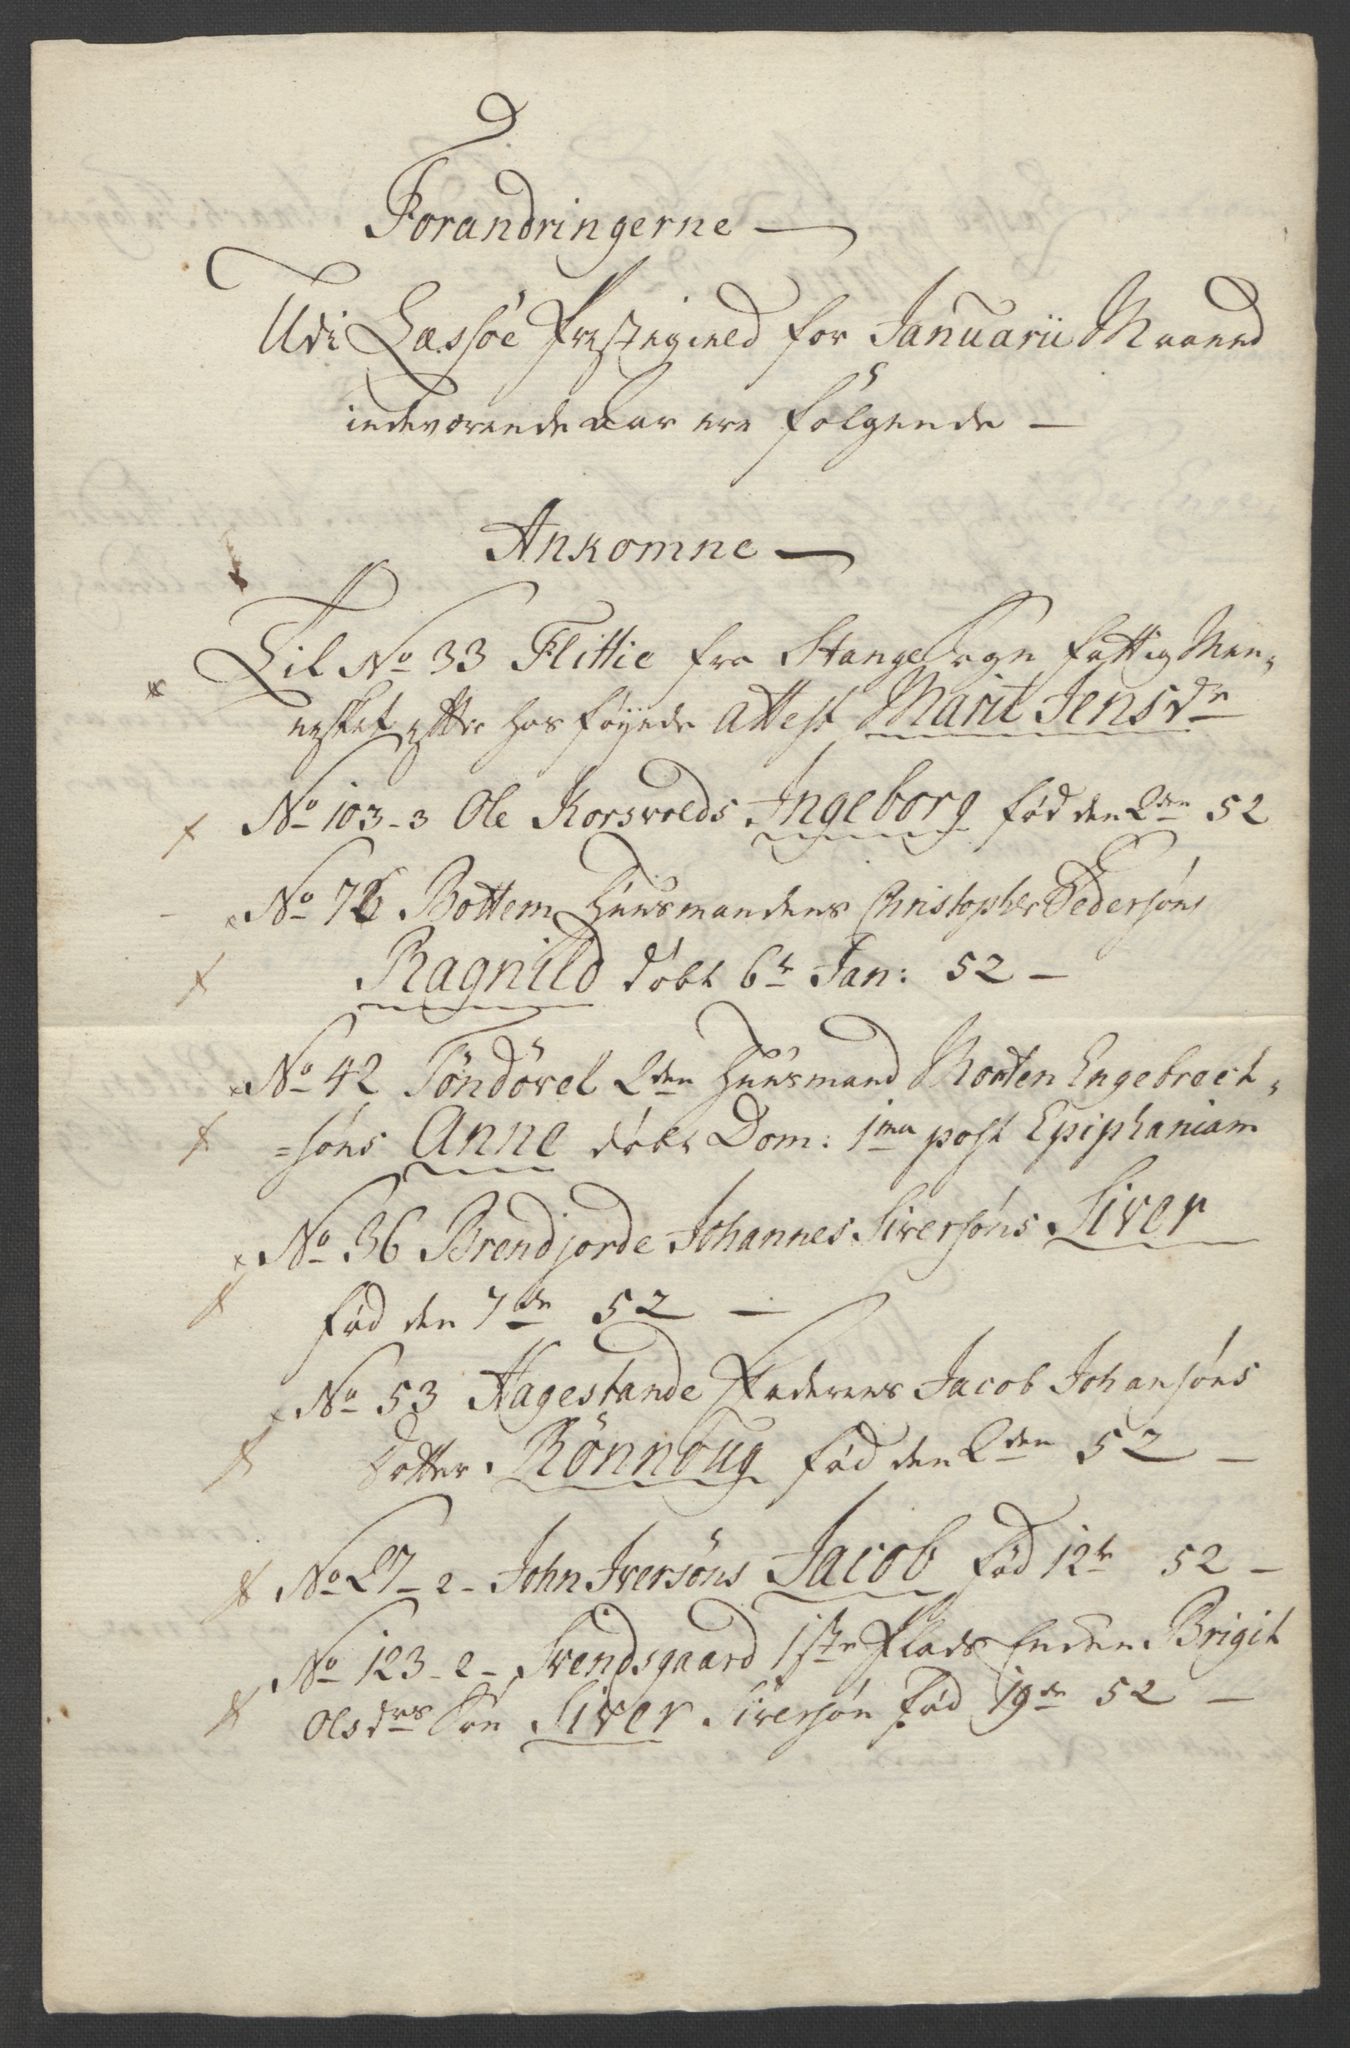 Forandringerne —
Udi Læssøe Præstegield for Januarii Maaned
indeværende Aar ere følgende —
Ankomne —
Til No 33 Flittie fra Stange Sogn fattig Men-
nesket efter hosføyede Attest Marit Jensdr
No 103-3 Ole Korsvolds Ingeborg fød den 2den 52
No 76 Bottem Huusmandens Christopher Pedersøns
Ragnild døbt 6te Jan: 52 —
No 42 Töndövel 2den Huusmand Morten Engebrect-
=søns Anne døbt Dom: 1ma post Epiphaniam
No 36 Brendjorde Johannes Siversøns Siver
fød den 7de 52 —
No 53 Hagestande Faderens Jacob Johansøns
Dotter Rönnoug fød den 2den 52 —
No 27-2- John Iversöns Jacob fød 12te 52 —
No 123-2- Svendsgaard 1ste Plads Enden Brigit
Olsdrs Søn Siver Siversøn fød 19de 52 —